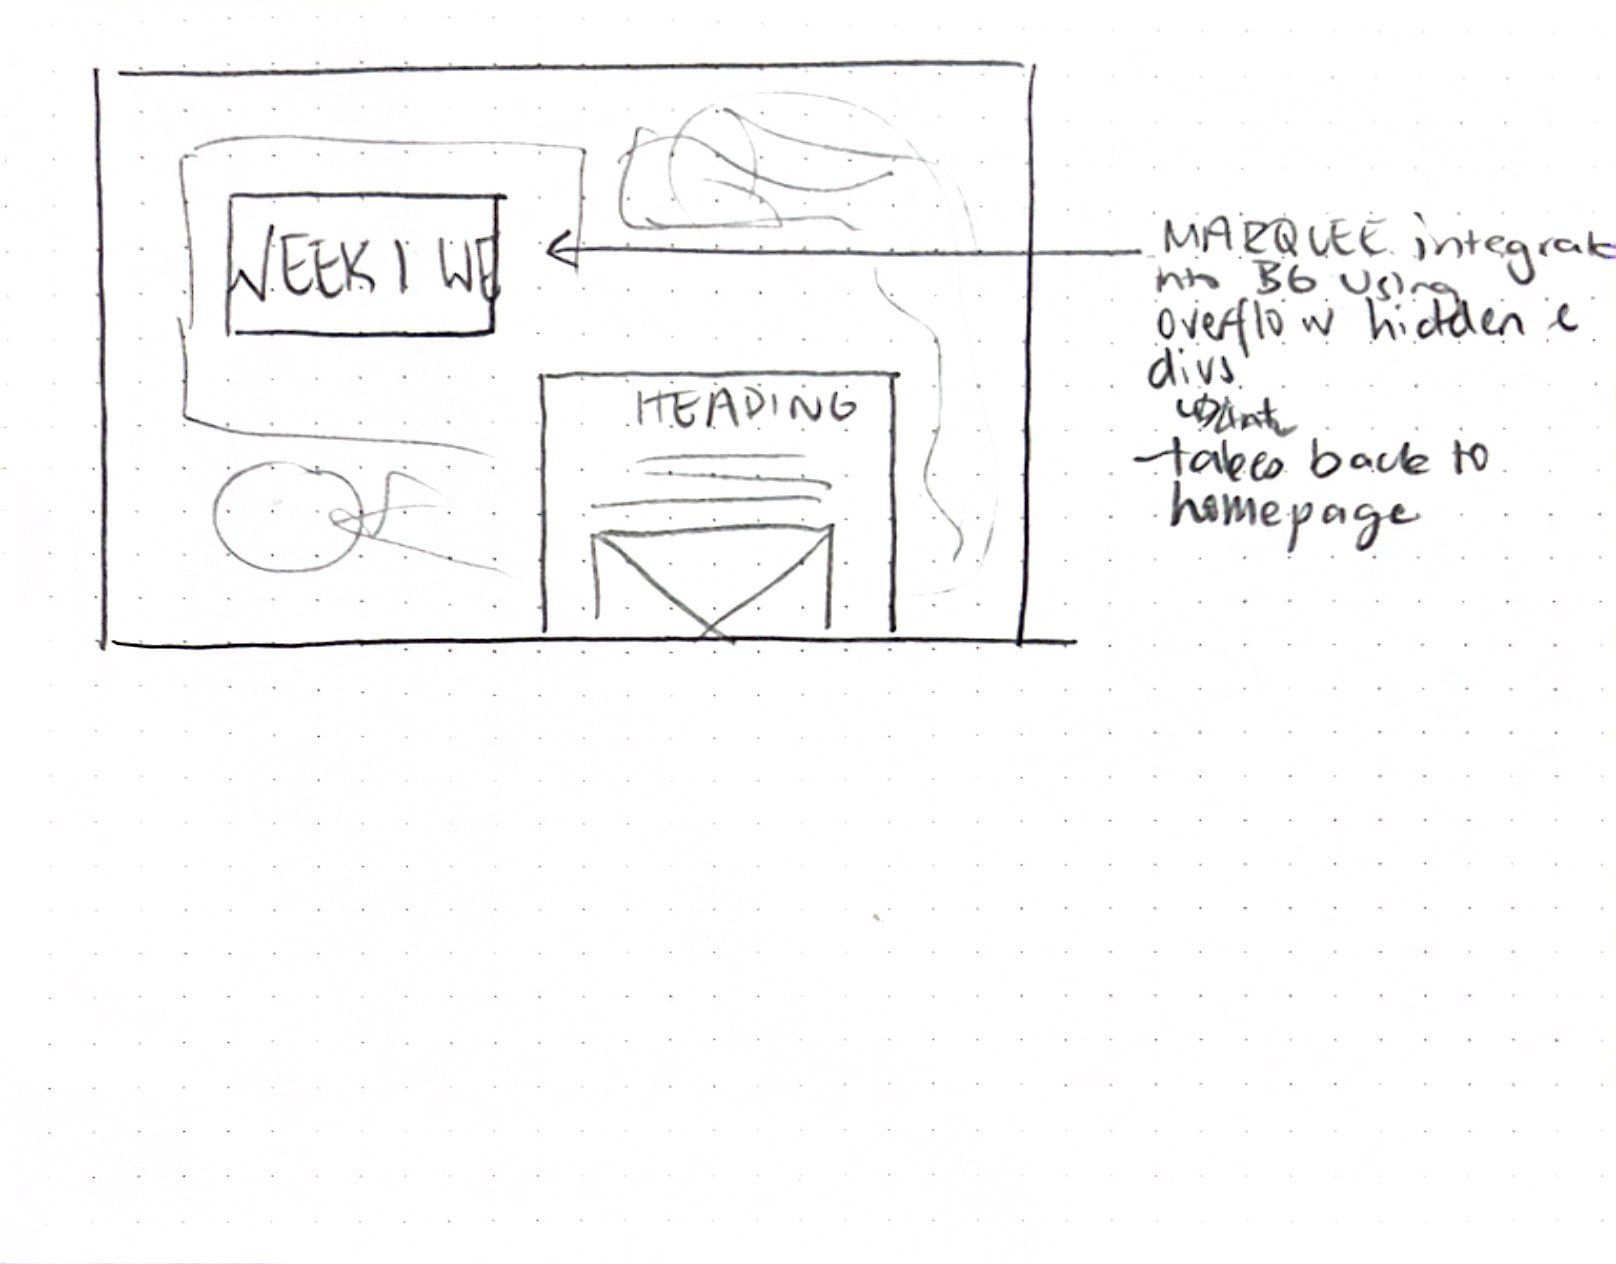 WEEK 1 WE
HEADING
MARQUEE integrat
into BG using
overflow hidden &
divs
- takes back to
homepage